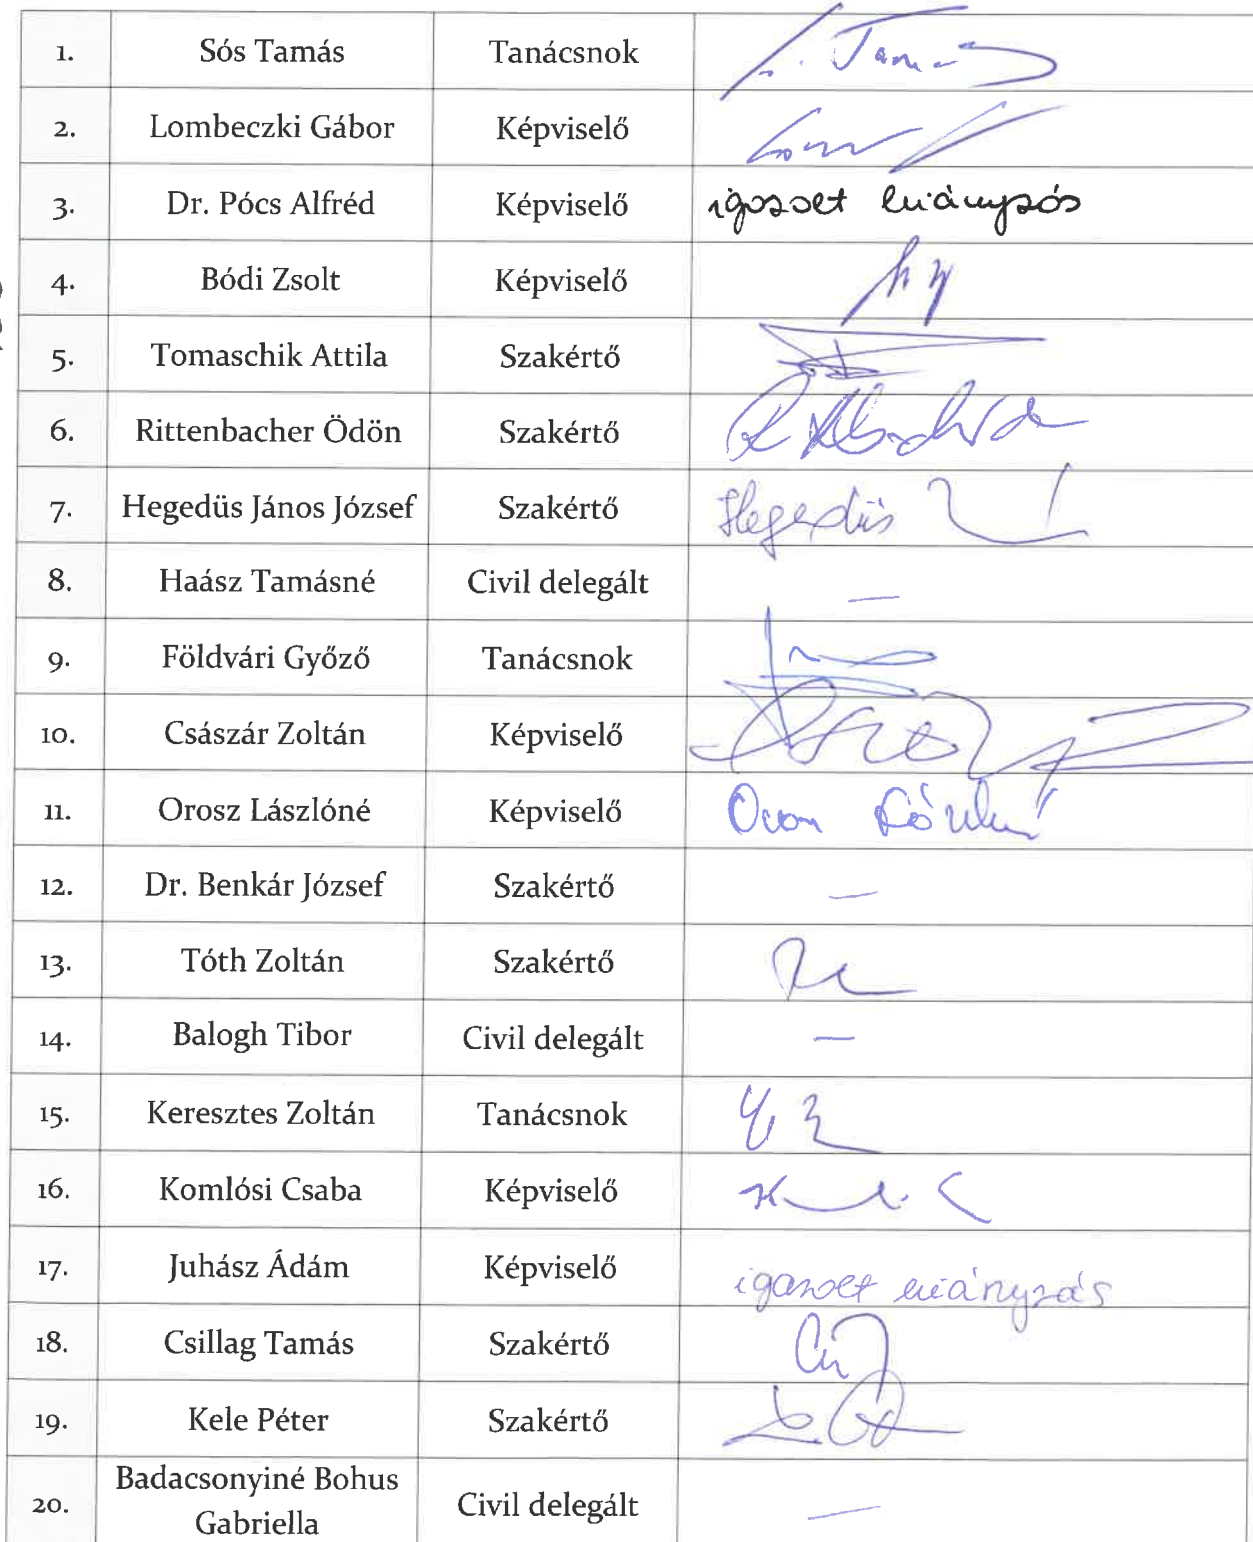 1. Sós Tamás Tanácsnok
2. Lombeczki Gábor Képviselő
3. Dr. Pócs Alfréd Képviselő igazolt hiányzás
4. Bódi Zsolt Képviselő
5. Tomaschik Attila Szakértő
6. Rittenbacher Ödön Szakértő
7. Hegedüs János József Szakértő Hegedüs
8. Haász Tamásné Civil delegált —
9. Földvári Győző Tanácsnok
10. Császár Zoltán Képviselő
11. Orosz Lászlóné Képviselő
12. Dr. Benkár József Szakértő —
13. Tóth Zoltán Szakértő
14. Balogh Tibor Civil delegált —
15. Keresztes Zoltán Tanácsnok
16. Komlósi Csaba Képviselő
17. Juhász Ádám Képviselő igazolt hiányzás
18. Csillag Tamás Szakértő
19. Kele Péter Szakértő
20. Badacsonyiné Bohus
Gabriella Civil delegált —